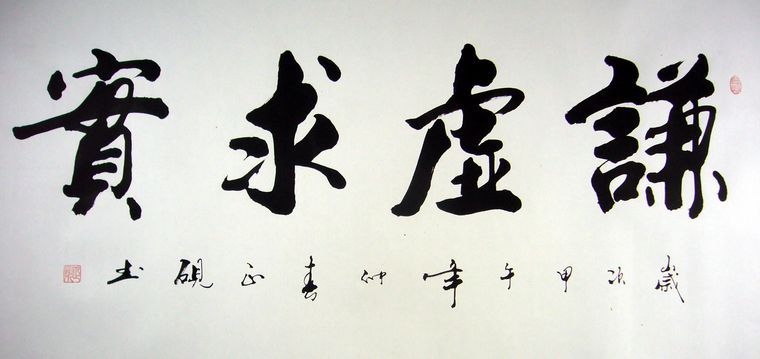 謙虚求實
歲次甲午年仲春正硯书